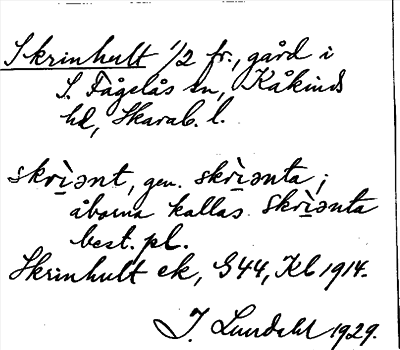 Skrinhult 1/2 fr., gård i
S. Fågelås sn, Kåkinds
hd, Skarab. l.
skrı̀ənt, gen. skrı̀ənta;
åborna kallas skrı̀ənta
best. pl.
Skrinhult ek, G44, Kb 1914.
J. Lundahl 1929.